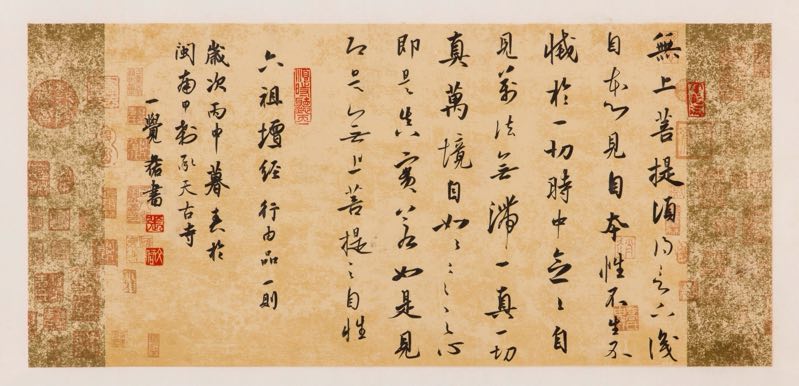 無上菩提須得言下識
自本心見自本性不生不
滅於一切時中念々自
見萬法無滯一真一切
真萬境自如々如々之心
即是真實若如是見
即是無上菩提之自性
六祖壇經 行由品一則
歲次丙申暮春於
閩南甲刹承天古寺
一覺書